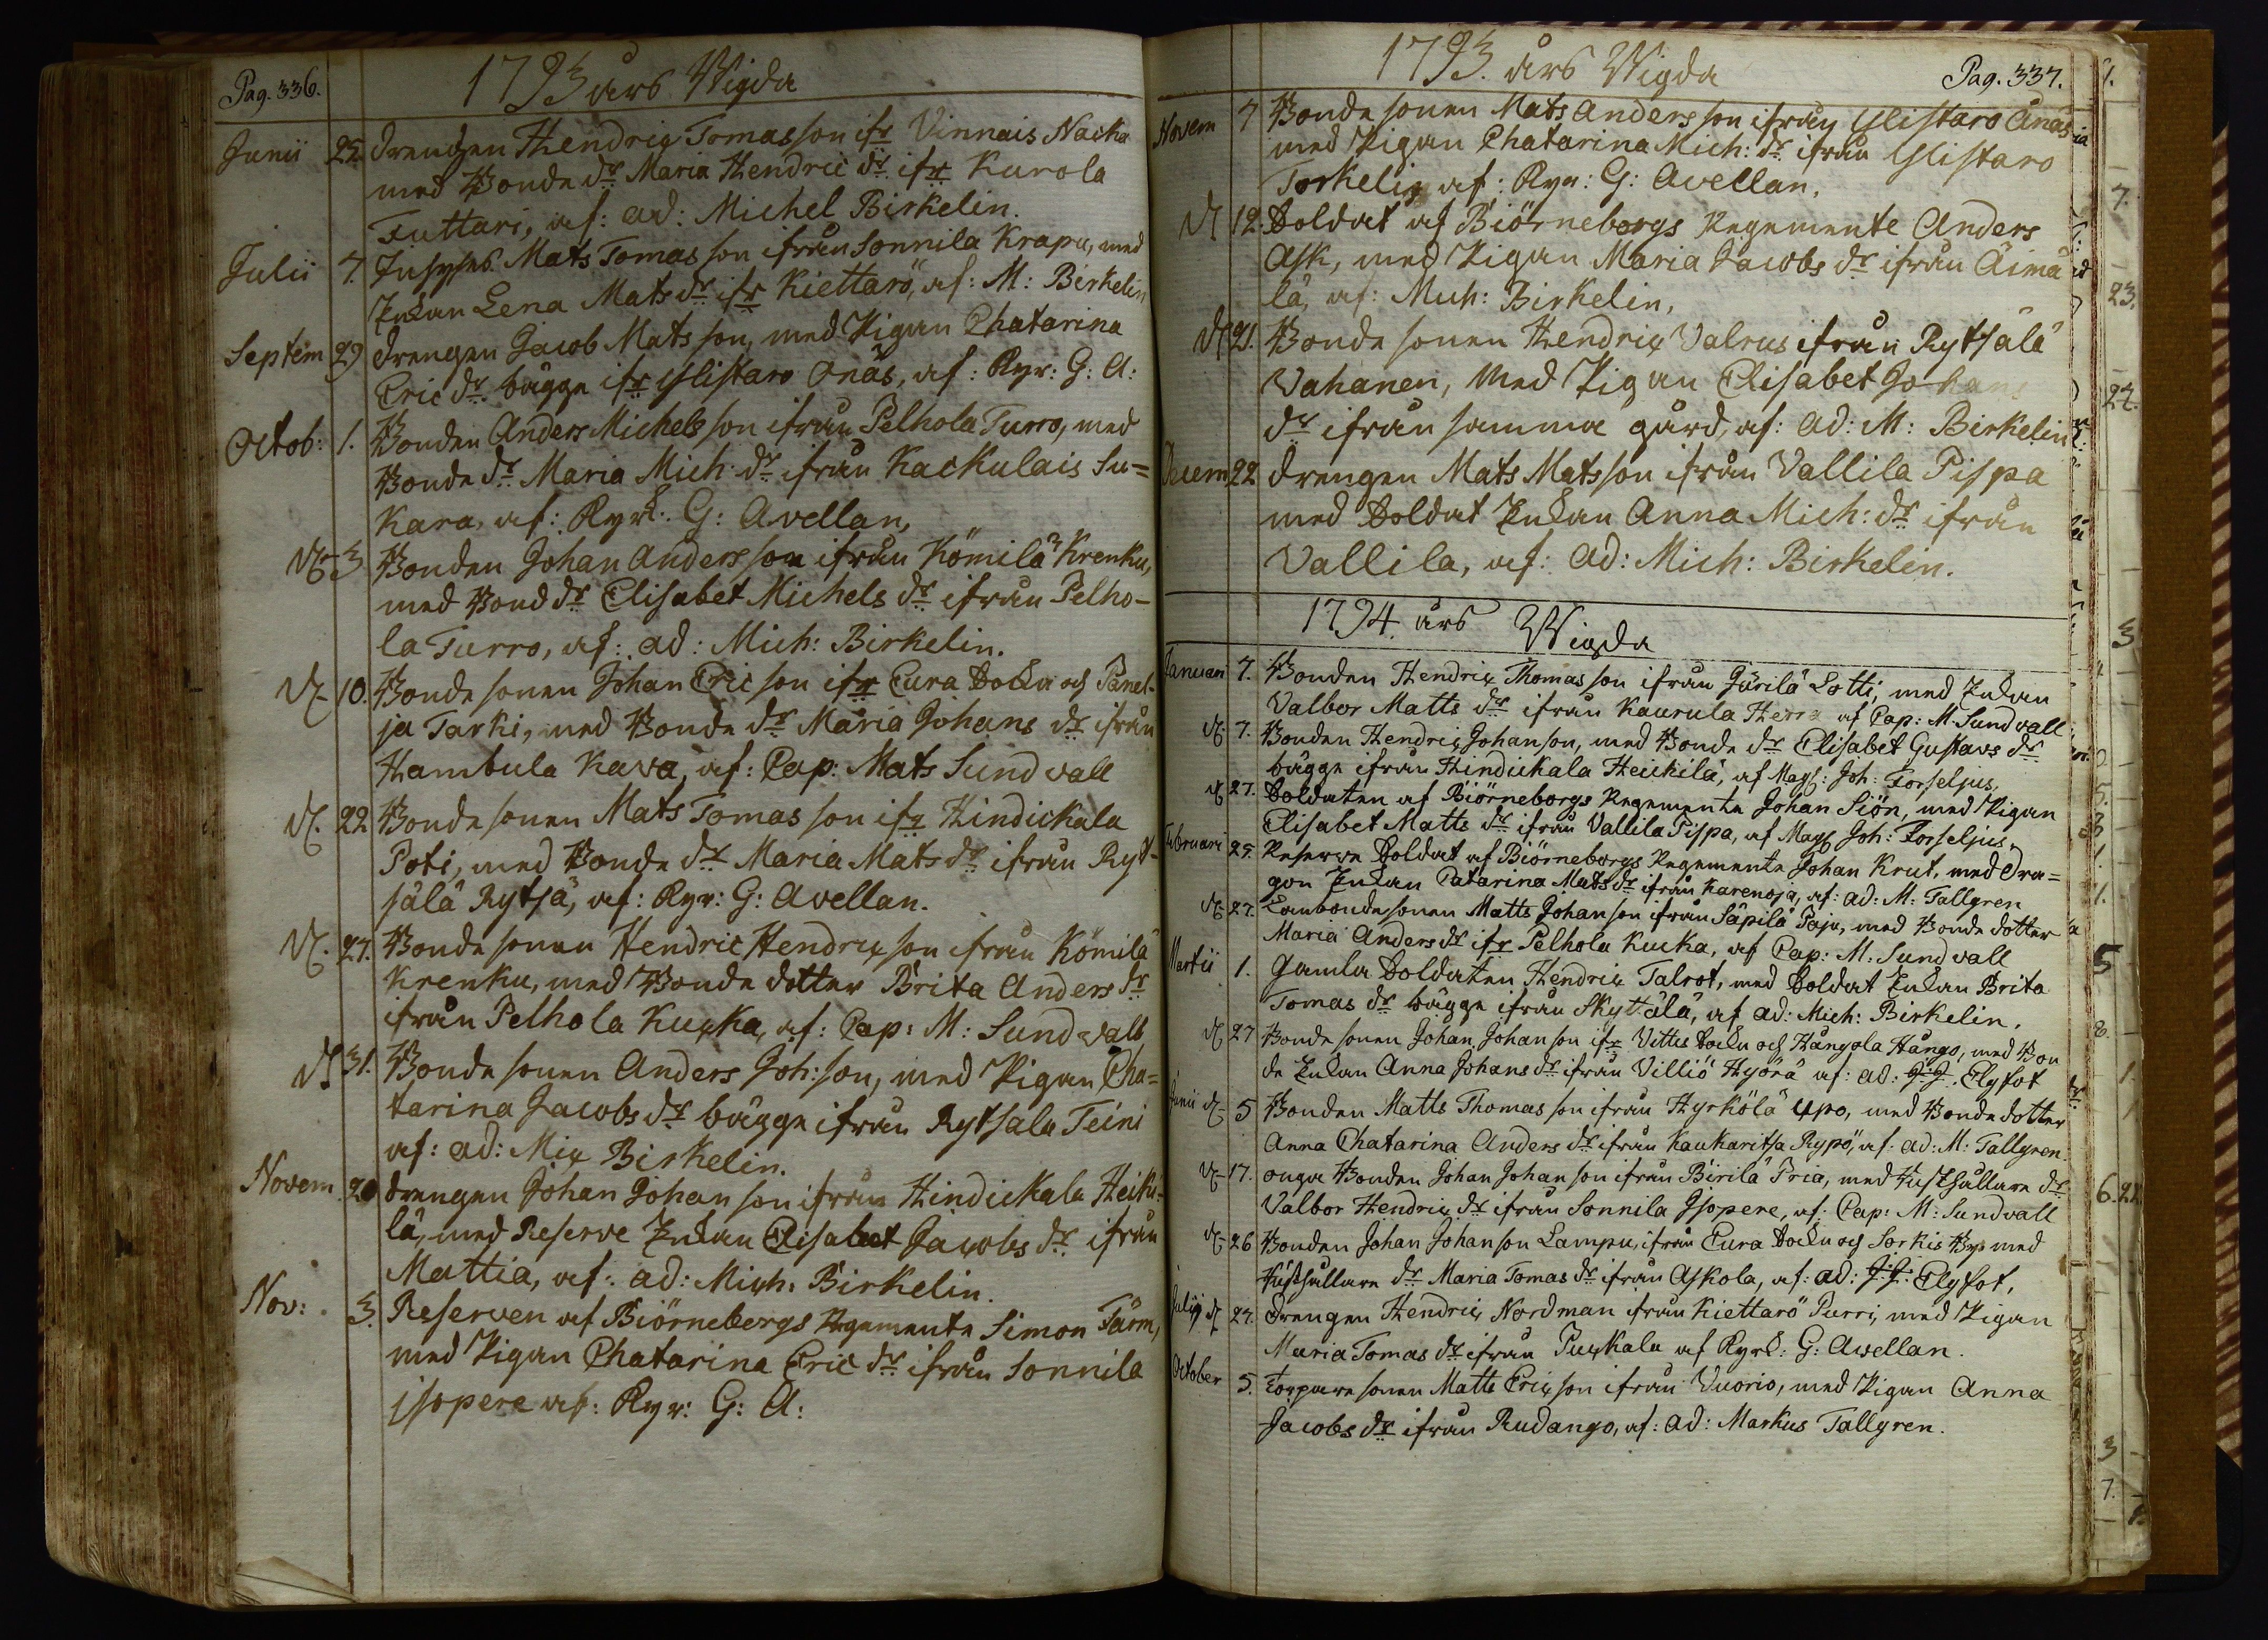 Pag. 336.
1793 års Wigda
Junii 25. drengen Hendric Tomasson ifr Vinnais Nacka
med Bonde dr Maria Hendric dr ifr Kurola
Futtari, af: ad: Michel Birkelin.
Julii 7. Inhyses Mats Tomasson ifrån Sonnila Krapu, med
Enkan Lena Matsdr ifr Kiettarö, af: M: Birkelin
Septem 29 drengen Jacob Matsson, med Pigan Chatarina
Eric dr bägge ifr Ylistaro Onäs, af: Kyr: G: A:
Octob: 1. Bonden Anders Michelsson ifrån Pelhola Turro, med
Bonde dr Maria Mich: dr ifrån Kackulais Su=
Kara, af: Kyrk: G: Avellan,
d 3 Bonden Johan Andersson ifrån Kömilä Krenku,
med Bond dr Elisabet Michels dr ifrån Pelho-
la Turro, af: ad: Mich: Birkelin.
d 10. Bonde sonen Johan Ericson ifr Eura Sockn och Panel-
ja Tarki, med Bonde dr Maria Johans dr ifrån
Hambula Kava, af: Cap: Mats Sundvall
d. 22 Bonde sonen Mats Tomasson ifr Hindickala
Poti, med Bonde dr Maria Matsdr ifrån Ryt-
sälä Rytsä, af: Kyr: G: Avellan.
d. 27. Bonde sonen Hendric Hendrixson ifrån Kömilä
Krenku, med Bonde dotter Brita Anders dr
ifrån Pelhola Kuckka, af: Cap: M: Sundvall,
d 31. Bonde sonen Anders Joh:son, med Pigan Cha=
tarina Jacobs dr bägge ifrån Rytsala Teini
af: ad: Mix Birkelin.
Novem. 20 drengen Johan Johanson ifrån Hindickala Heiki-
lä, med Reserve Enkan Elisabet Jacobs dr ifrån
Mattia, af: ad: Mich: Birkelin.
Nov: 3. Reserven af Biörnebergs Regemente Simon Tärm,
med Pigan Chatarina Eric dr ifrån Sonnila
jsopere af: Kyr: G: A:
1793. års Wigda
Pag. 337.
Novem 7 Bonde sonen Mats Andersson ifrån Ylistaro Ånäs
med Pigan Chatarina Mich: dr ifrån Ylistaro
Torkelis af: Kyr: G: Avellan.
d 12. Soldat af Biörneborgs Regemente Anders
Ask, med Pigan Maria Jacobs dr ifrån Äimä
lä, af: Mich: Birkelin,
d 21. Bonde sonen Hendrix Valrus ifrån Rytsälä
Vahanen, med Pigan Elisabet Johans
dr ifrån samma gård, af: ad: M: Birkelin
Decem 22 drengen Mats Matsson ifrån Vallila Pispa
med Soldat Enkan Anna Mich: dr ifrån
Vallila, af: ad: Mich: Birkelin.
1794. års Wigda
Januari 7. Bonden Hendrix Thomasson ifrån Järilä Lotti, med Enkan
Valbor Matts dr ifrån Kaurula Herra af Cap: M. Sundvall
d. 7. Bonden Hendrix Johanson, med Bonde dr Elisabet Gustavs dr
bägge ifrån Hindickala Heickilä, af Mag: Joh: Forseljus,
d 27. Soldaten af Biörneborgs Regemente Johan Siön, med Pigan
Elisabet Matts dr ifrån Vallila Pispa, af Mag Joh: Forseljus.
Februari 25. Reserve Soldat af Biörneborgs Regemente Johan Krut, med Dra=
gon Enkan Catarina Mats dr ifrån Karenoja, af: ad: M: Tallgren
d. 27. Lambonde sonen Matts Johanson ifrån Säpilä Paju, med Bonde dotter
Maria Anders dr ifr Pelhola Kucka, af Cap: M: Sundvall
Martii 1. Gamla Soldaten Hendrix Talrot, med Soldat Enkan Brita
Tomas dr bägge ifrån Skytälä, af ad: Mich: Birkelin.
d 27 Bonde sonen Johan Johanson ifr Vittis Sockn och Hångola Hångo, med Bon
de Enkan Anna Johans dr ifrån Villiö Hyörä af: ad: J:J. Elgfot
Junii d. 5 Bonden Matts Thomasson ifrån Hyrkölä Ypo, med Bonde dotter
Anna Chatarina Anders dr ifrån Kaukaritsa Rypö, af: ad: M: Tallgren.
d. 17. unga Bonden Johan Johanson ifrån Birila Pria, med Rusthållare dr
Valbor Hendrix dr ifrån Sonnila Jsopere, af: Cap: M: Sundvall
d. 26 Bonden Johan Johanson Lampu, ifrån Eura Sockn och Sorkis By med
Rusthållare dr Maria Tomas dr ifrån Askola, af: ad: J:J: Elgfot.
Julii d 27. drengen Hendrix Nordman ifrån Kiettarö Purri, med Pigan
Maria Tomas dr ifrån Puckala af Kyrk: G: Avellan.
October 5. Torpare sonen Matts Ericson ifrån Vuorio, med Pigan Anna
Jacobs dr ifrån Rudango, af: ad: Markus Tallgren.